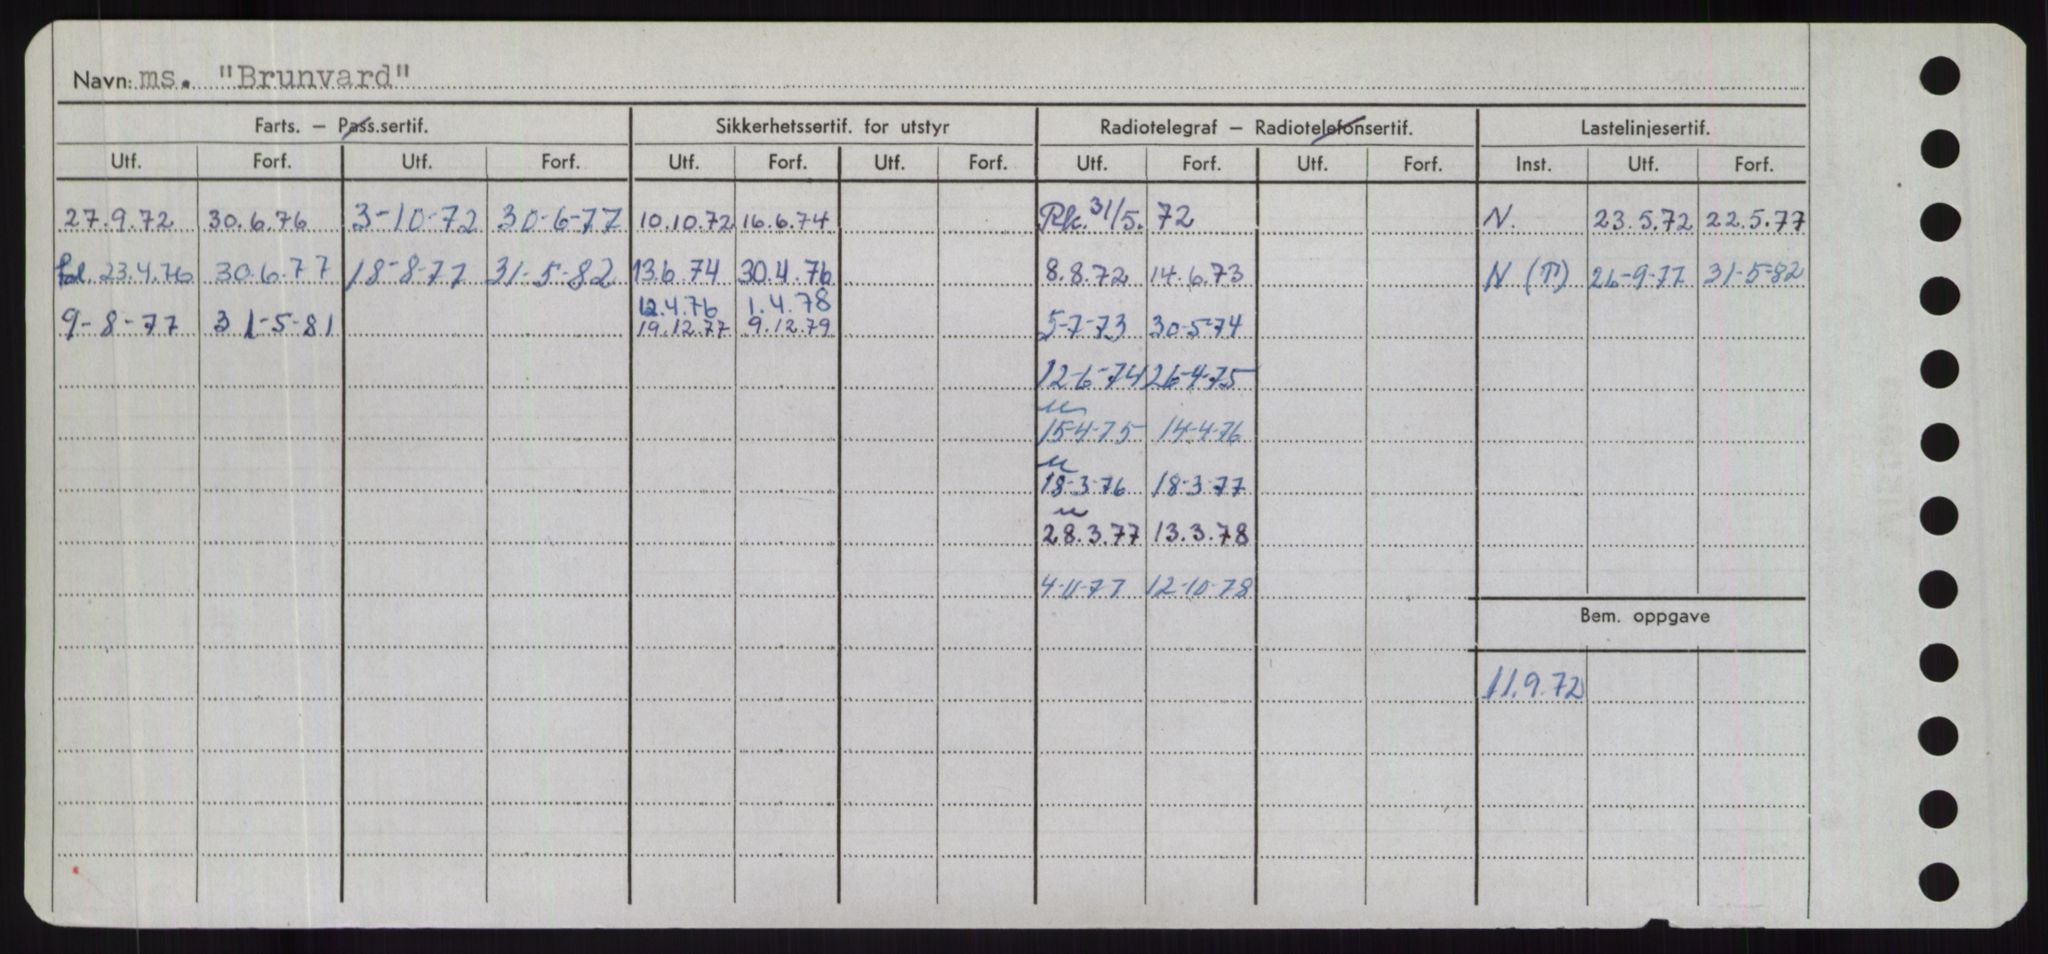 Navn: ms. "Brunvard"
Farts. – Pass.sertif. Sikkerhetssertif. for utstyr Radiotelegraf – Radiotelefonsertif. Lastelinjesertif.
Utf. Forf. Utf. Forf. Utf. Forf. Utf. Forf. Utf. Forf. Utf. Forf. Inst. Utf. Forf.
27.9.72 30.6.76 3-10-72 30-6-77 10.10.72 16.6.74 Rk. 31/5. 72 N. 23.5.72 22.5.77
23.4.76 30.6.77 18-8-77 31-5-82 13.6.74 30.4.76 8.8.72 14.6.73 N (T) 26-9-77 31-5-82
12.4.76 1.4.78
9-8-77 31-5-81 19.12.77 9.12.79 5-7-73 30-5-74
12-6-74 26-4-75
u
15-4-75 14-4-76
u
18-3-76 18-3-77
u
28.3.77 13.3.78
4-11-77 12-10-78
Bem. oppgave
11.9.72